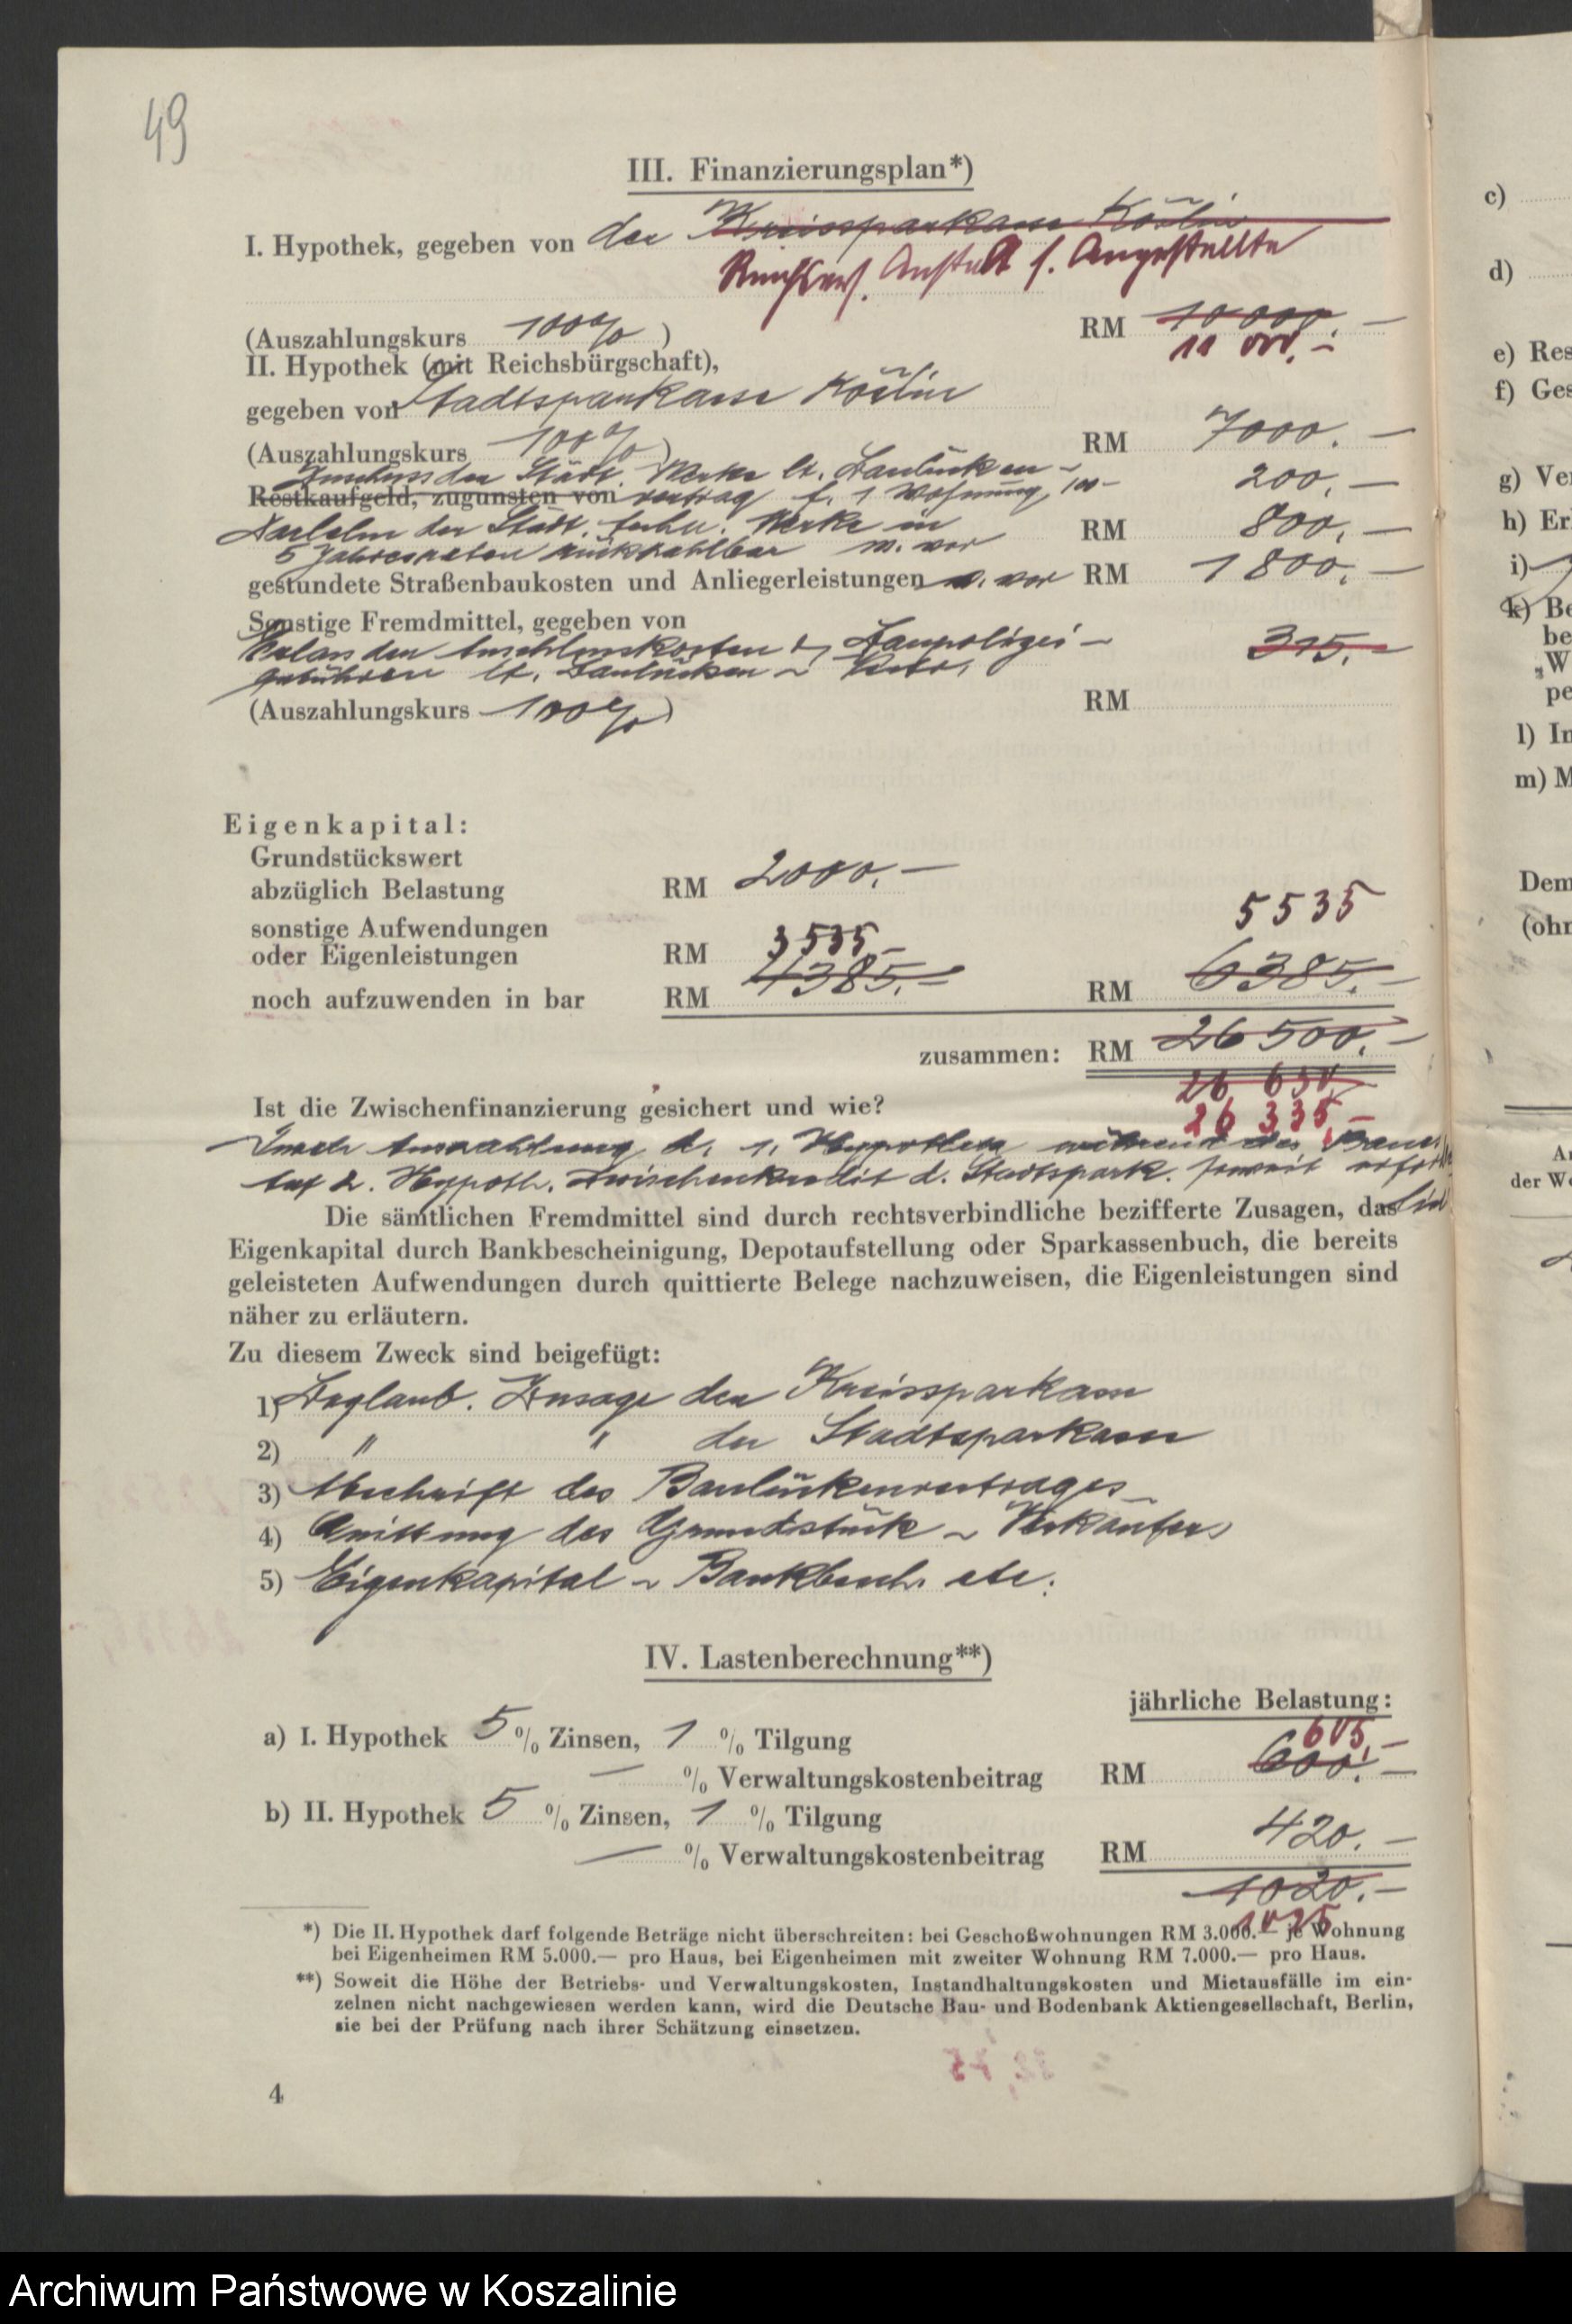 49
III. Finanzierungsplan*)
I. Hypothek, gegeben von der Kreissparkasse Köslin
Anstalt f. Angestellte
(Auszahlungskurs 100% ) RM 10000.—
11 000.—
II. Hypothek (mit Reichsbürgschaft),
gegeben von Stadtsparkasse Köslin
(Auszahlungskurs 100% ) RM 7000.—
Zuschuss der Städt. Werke lt. Baulücken- 200.—
Restkaufgeld, zugunsten von vertrag f. 1 Wohnung
Darlehn der Städt. techn. Werke in RM 800.—
5 Jahresraten rückzahlbar
gestundete Straßenbaukosten und Anliegerleistungen RM 1800.—
Sonstige Fremdmittel, gegeben von
Erlass der Anschlusskosten Baupolizei- 315.—
gebühren lt. Baulücken-
(Auszahlungskurs 100%) RM
Eigenkapital:
Grundstückswert
abzüglich Belastung RM 2000.—
5535
sonstige Aufwendungen
oder Eigenleistungen RM 3535.—
4385.— 6385.—
noch aufzuwenden in bar RM RM
zusammen: RM 26500.—
26 650
26 335.—
Ist die Zwischenfinanzierung gesichert und wie?
Durch Auszahlung d. 1. Hypothek während des
Auf 2. Hypoth. Zwischenkredit d. Stadtspark. soweit
Die sämtlichen Fremdmittel sind durch rechtsverbindliche bezifferte Zusagen, das
Eigenkapital durch Bankbescheinigung, Depotaufstellung oder Sparkassenbuch, die bereits
geleisteten Aufwendungen durch quittierte Belege nachzuweisen, die Eigenleistungen sind
näher zu erläutern.
Zu diesem Zweck sind beigefügt:
1) Beglaub. Zusage der Kreissparkasse
2) " " der Stadtsparkasse
3) Abschrift des Baulückenvertrages
4) Quittung des Grundstück - Verkäufers
5) Eigenkapital - Bankbesch. etc.
IV. Lastenberechnung**)
jährliche Belastung:
a) I. Hypothek 5 % Zinsen, 1 % Tilgung 605.—
— % Verwaltungskostenbeitrag RM 600.—
b) II. Hypothek 5 % Zinsen, 1 % Tilgung
— % Verwaltungskostenbeitrag RM 420.—
1020.—
1025
*) Die II. Hypothek darf folgende Beträge nicht überschreiten: bei Geschoßwohnungen RM 3.000.— je Wohnung
bei Eigenheimen RM 5.000.— pro Haus, bei Eigenheimen mit zweiter Wohnung RM 7.000.— pro Haus.
**) Soweit die Höhe der Betriebs- und Verwaltungskosten, Instandhaltungskosten und Mietausfälle im ein-
zelnen nicht nachgewiesen werden kann, wird die Deutsche Bau- und Bodenbank Aktiengesellschaft, Berlin,
sie bei der Prüfung nach ihrer Schätzung einsetzen.
4
c)
d)
e) Res
f) Ges
g) Ver
h) Er
i)
k) Be
be
„W
pe
l) In
m) M
Dem
(ohn
der We
Archiwum Państwowe w Koszalinie